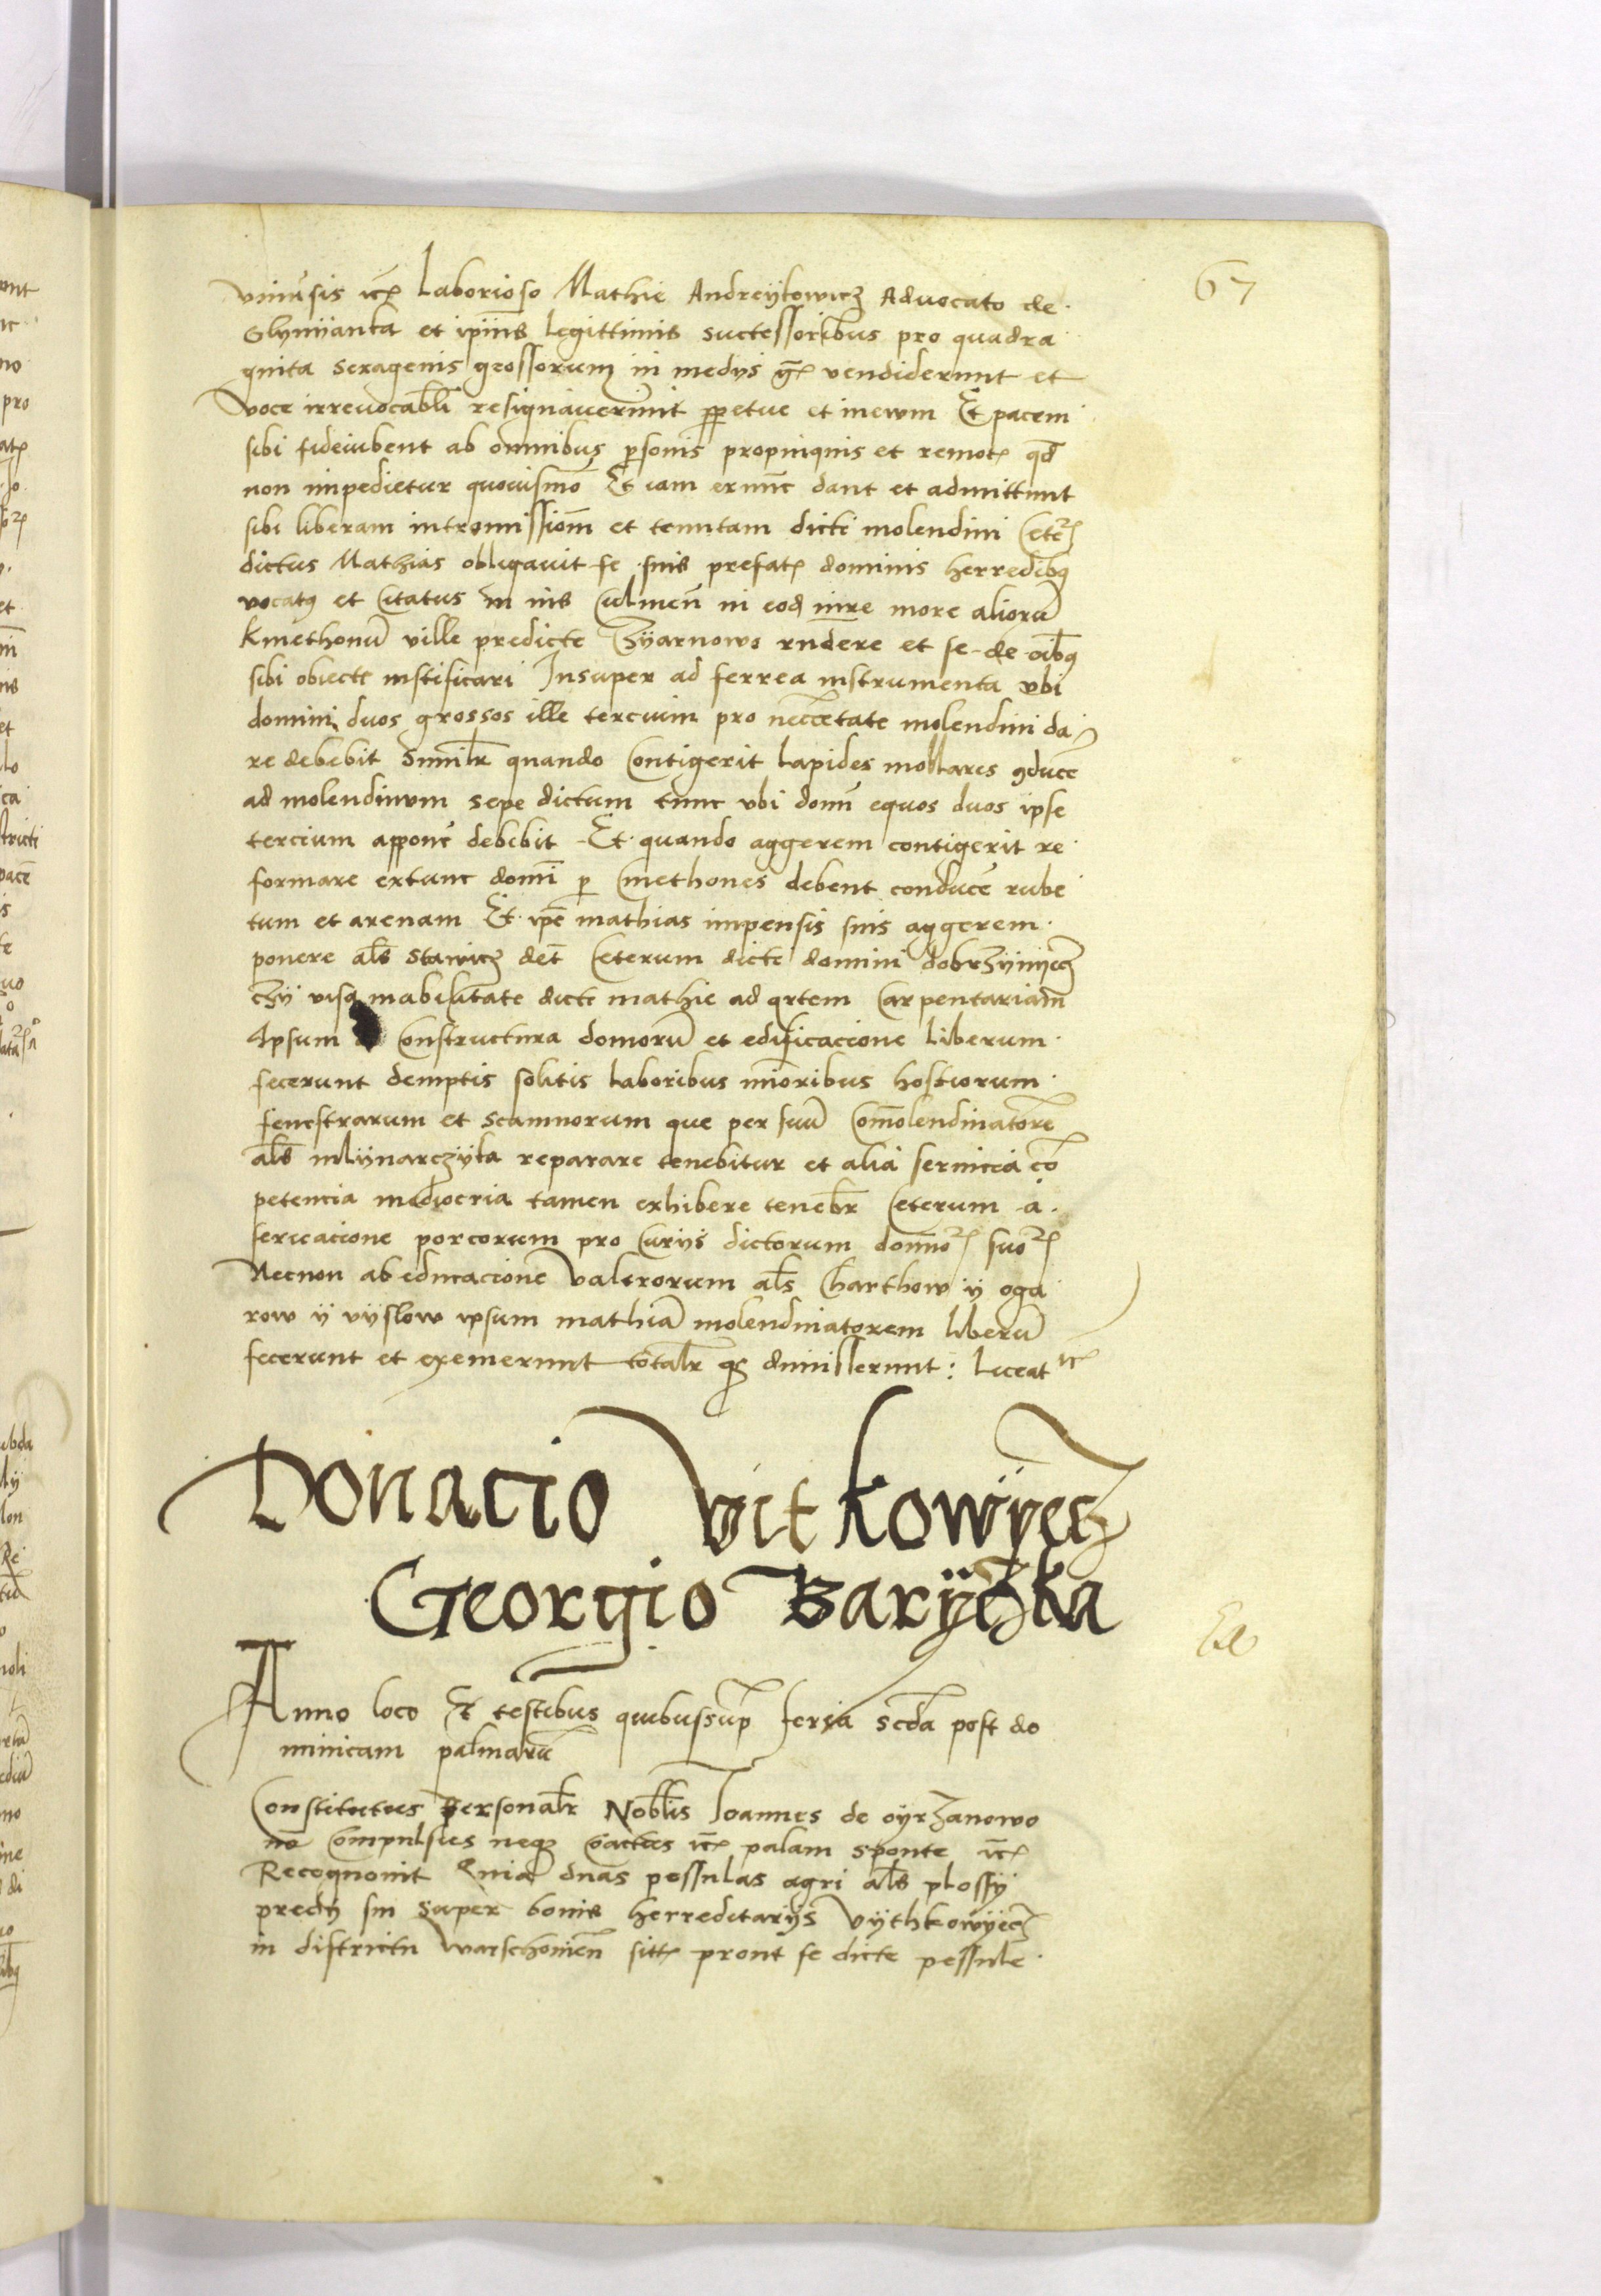 67
vniusis ꝛcꝭ Laborioso Mathie Andreykowicz Advocato de
Glynyanka et ipius legittimis successoribus pro quadra
ginta sexagenis grossorum in medys gꝭ vendiderunt et
voce irrevocabli resignaverunt ppetue et inewm Et pacem
sibi fideiubent ab omnibus psonis propinquis et remotꝭ qd
non impedietur quovismo Et iam exnunc dant et admittunt
sibi liberam intromissiom et tenutam dicti molendini Cetꝝ
dictus Mathias obligavit se suis prefatꝭ dominis herredibꝰ
vocatꝰ et Citatus in ius Culmen in eod iure more alioru
kmethonu ville predicte Zyarnowo rndere et se de oibꝰ
sibi obiectꝭ iustificari Insuper ad ferrea instrumenta vbi
domini duos grossos ille tercium pro neccetate molendini da
re debebit Similr quando Contigerit lapides mollares ꝯduce
ad molendinum sepe dictum tunc vbi domi equos duos ipse
tercium appone debebit Et quando aggerem contigerit re
formare extunc domi p Cmethones debent conduce rube
tum et arenam Et ipe mathias impensis suis aggerem
ponere als stawicz det Ceterum dicti domini dobrzyniecz
czy visa mabilitate dicti mathie ad artem Carpentariam
Ipsum Constructura domoru et edificacione liberum
fecerunt demptis solitis laboribus mioribus hostiorum
fenestrarum et scamnorum que per suu Comolendinatore
als mlynarczyka reparare tenebitur et alia servicia co
petencia mediocria tamen exhibere tenebr Ceterum a
servacione porcorum pro Curiis dictorum domoꝝ suoꝝ
Necnon ab educacione valtrorum als Charthow y oga
row y vyslow ipsum mathia molendinatorem liberu
fecerunt et exemerunt totalr qꝫ dimisserunt: Liceat ꝛcꝭ
Donacio vitkowyecz
Georgio Baryczka
Anno loco Et testibus quibussup feria scda post do
minicam palmaru
Constitutus personalr Noblis Joannes de oyrzanowo
no Compulsus neqꝫ coactus ꝛcꝭ palam sponte ꝛcꝭ
Recognovit Quia duas pessulas agri als plossy
predy sui super bonis herreditariis vythkowyecz
in districtu warschovien sittꝭ prout se dicte pessule